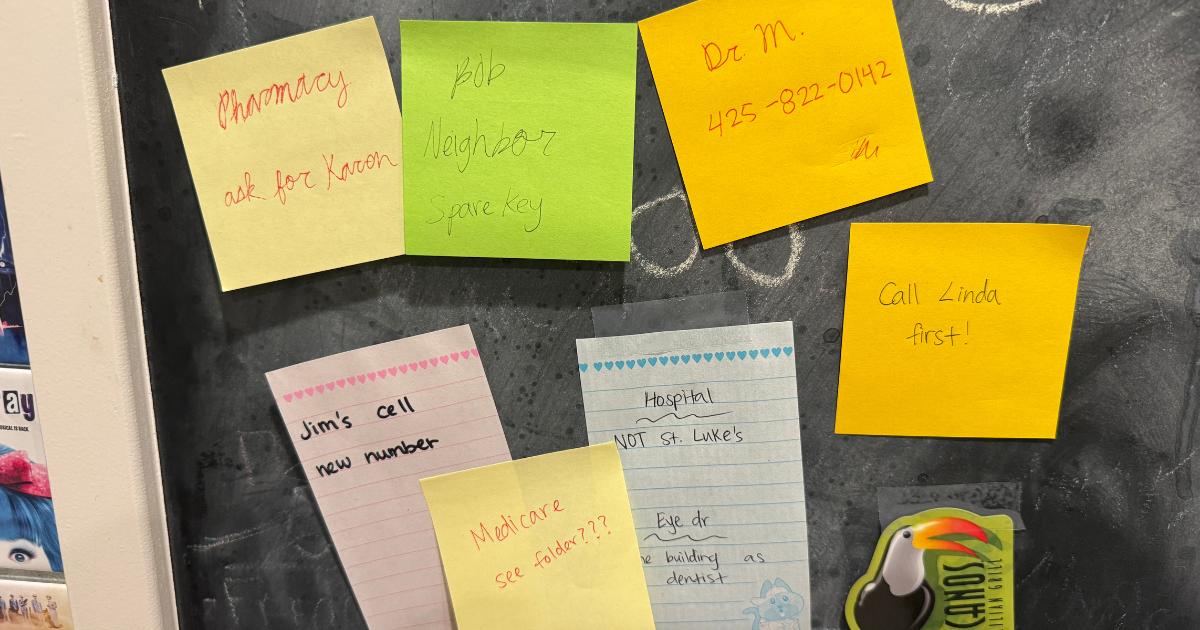 Pharmacy
ask for Karen
Bob
Neighbor
Spare Key
Dr. M.
425-822-0142
Call Linda
first!
Jim's cell
new number
Hospital
NOT St. Luke's
Eye dr
building as
dentist
Medicare
see folder???
ay